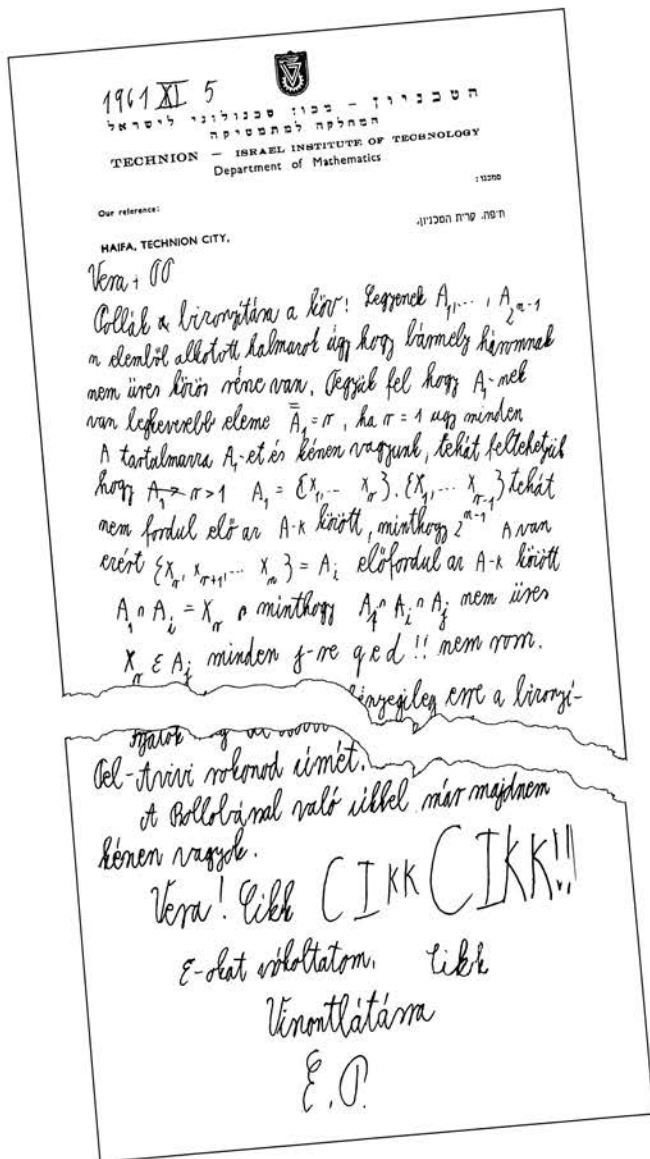 1961 XI 5
הטכניון – מכון טכנולוגי לישראל
המחלקה למתמטיקה
TECHNION — ISRAEL INSTITUTE OF TECHNOLOGY
Department of Mathematics
Our reference:
סמכנו:
HAIFA, TECHNION CITY,
חיפה, קרית הטכניון,
Vera +
Pollák bizonyítása a köv! Legyenek A₁, ... , A_{2^{n-1}}
n elemből alkotott halmazok úgy hogy bármely háromnak
nem üres közös része van. Tegyük fel hogy A₁-nek
van legkevesebb eleme A̿₁ = r, ha r = 1 ugy minden
A tartalmazza A₁-et és készen vagyunk, tehát feltehetjük
hogy r > 1 A₁ = {x₁, ... x_r}. {x₁, ... x_{r-1}} tehát
nem fordul elő az A-k között, minthogy 2^{n-1} A van
ezért {x_r, x_{r+1}, ... x_n} = A_i előfordul az A-k között
A₁ ∩ A_i = x_r minthogy A₁ ∩ A_i ∩ A_j nem üres
x_r ε A_j minden j-re q e d !! nem rossz.
lényegileg erre a bizonyí-
Tel-Avivi rokonod címét.
A Bollobással való cikkel már majdnem
készen vagyok.
Vera! Cikk CIKK CIKK!!
E-okat csókoltatom. Cikk
Viszontlátásra
E. P.